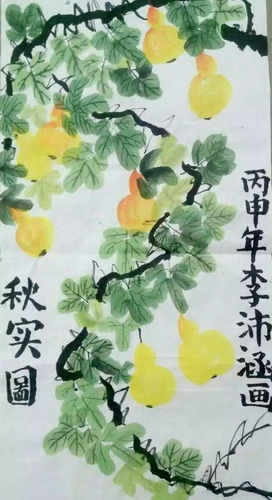 丙申年李沛涵画
秋实圖